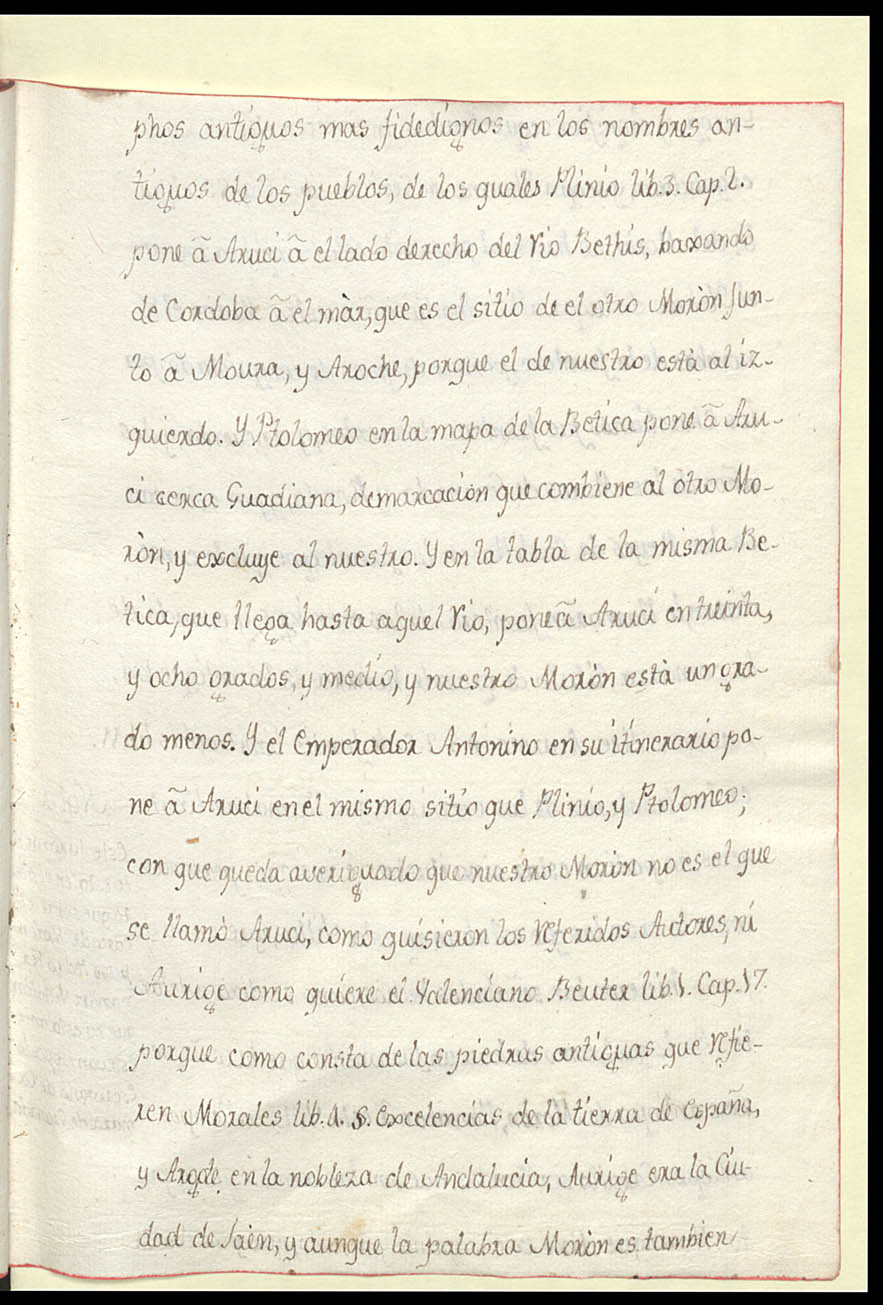 phos antiguos mas fidedignos en los nombres an-
tiguos de los pueblos, de los quales Plinio lib. 3. Cap. 1.
pone ã Aruci ã el lado derecho del rio Bethis, baxando
de Cordoba ã el màr, que es el sitio de el otro Moròn Jun-
to ã Moura, y Aroche, porque el de nuestro està al iz-
quierdo. Y Ptolomeo en la mapa de la Betica pone ã Aru-
ci serca Guadiana, demarcacion que combiene al otro Mo-
ròn, y excluye al nuestro. Y en la tabla de la misma Be-
tica, que llega hasta aquel rio, pone ã Aruci en treinta,
y ocho grados, y medio, y nuestro Moròn està un gra-
do menos. Y el Emperador Antonino en su itinerario po-
ne ã Aruci en el mismo sitio que Plinio, y Ptolomeo;
con que queda averiguado que nuestro Moròn no es el que
se llamò Aruci, como quisieron los referidos Autores, ni
Aurige como quiere el Valenciano Beuter lib. 1. Cap. 17.
porque como consta de las piedras antiguas que refie-
ren Morales lib. 1. §. Excelencias, de la tierra de España,
y Argde en la nobleza de Andalucia, Aurige era la Ciu-
dad de Jaèn, y aunque la palabra Moròn es tambien